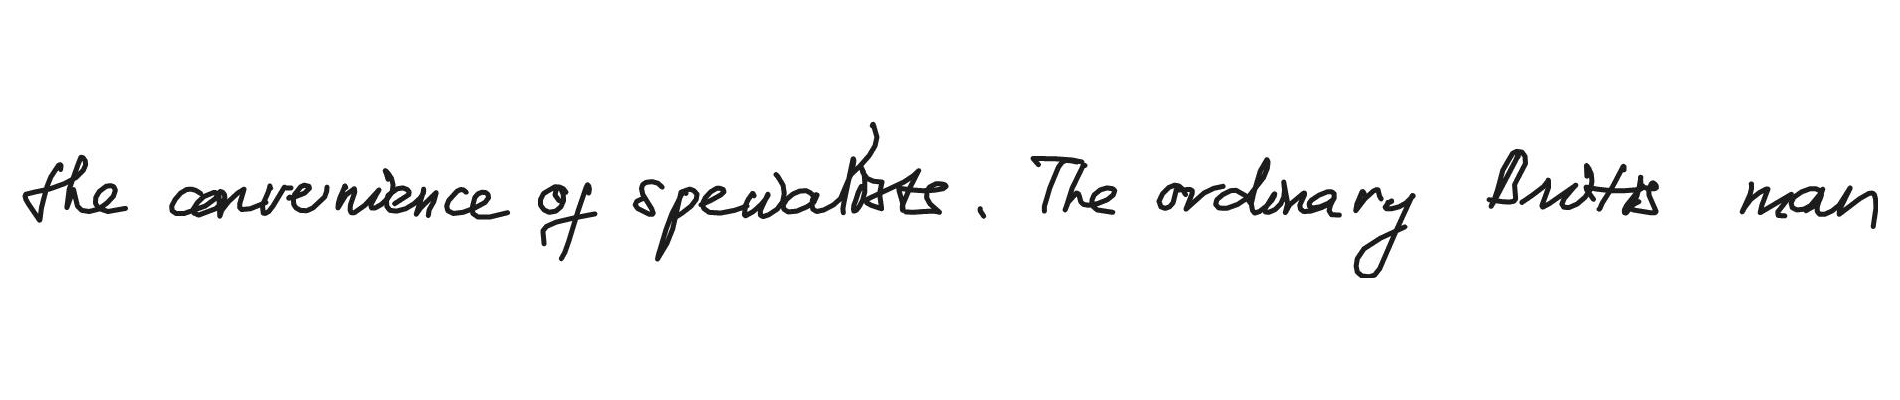 the convenience of specialists. The ordinary British man